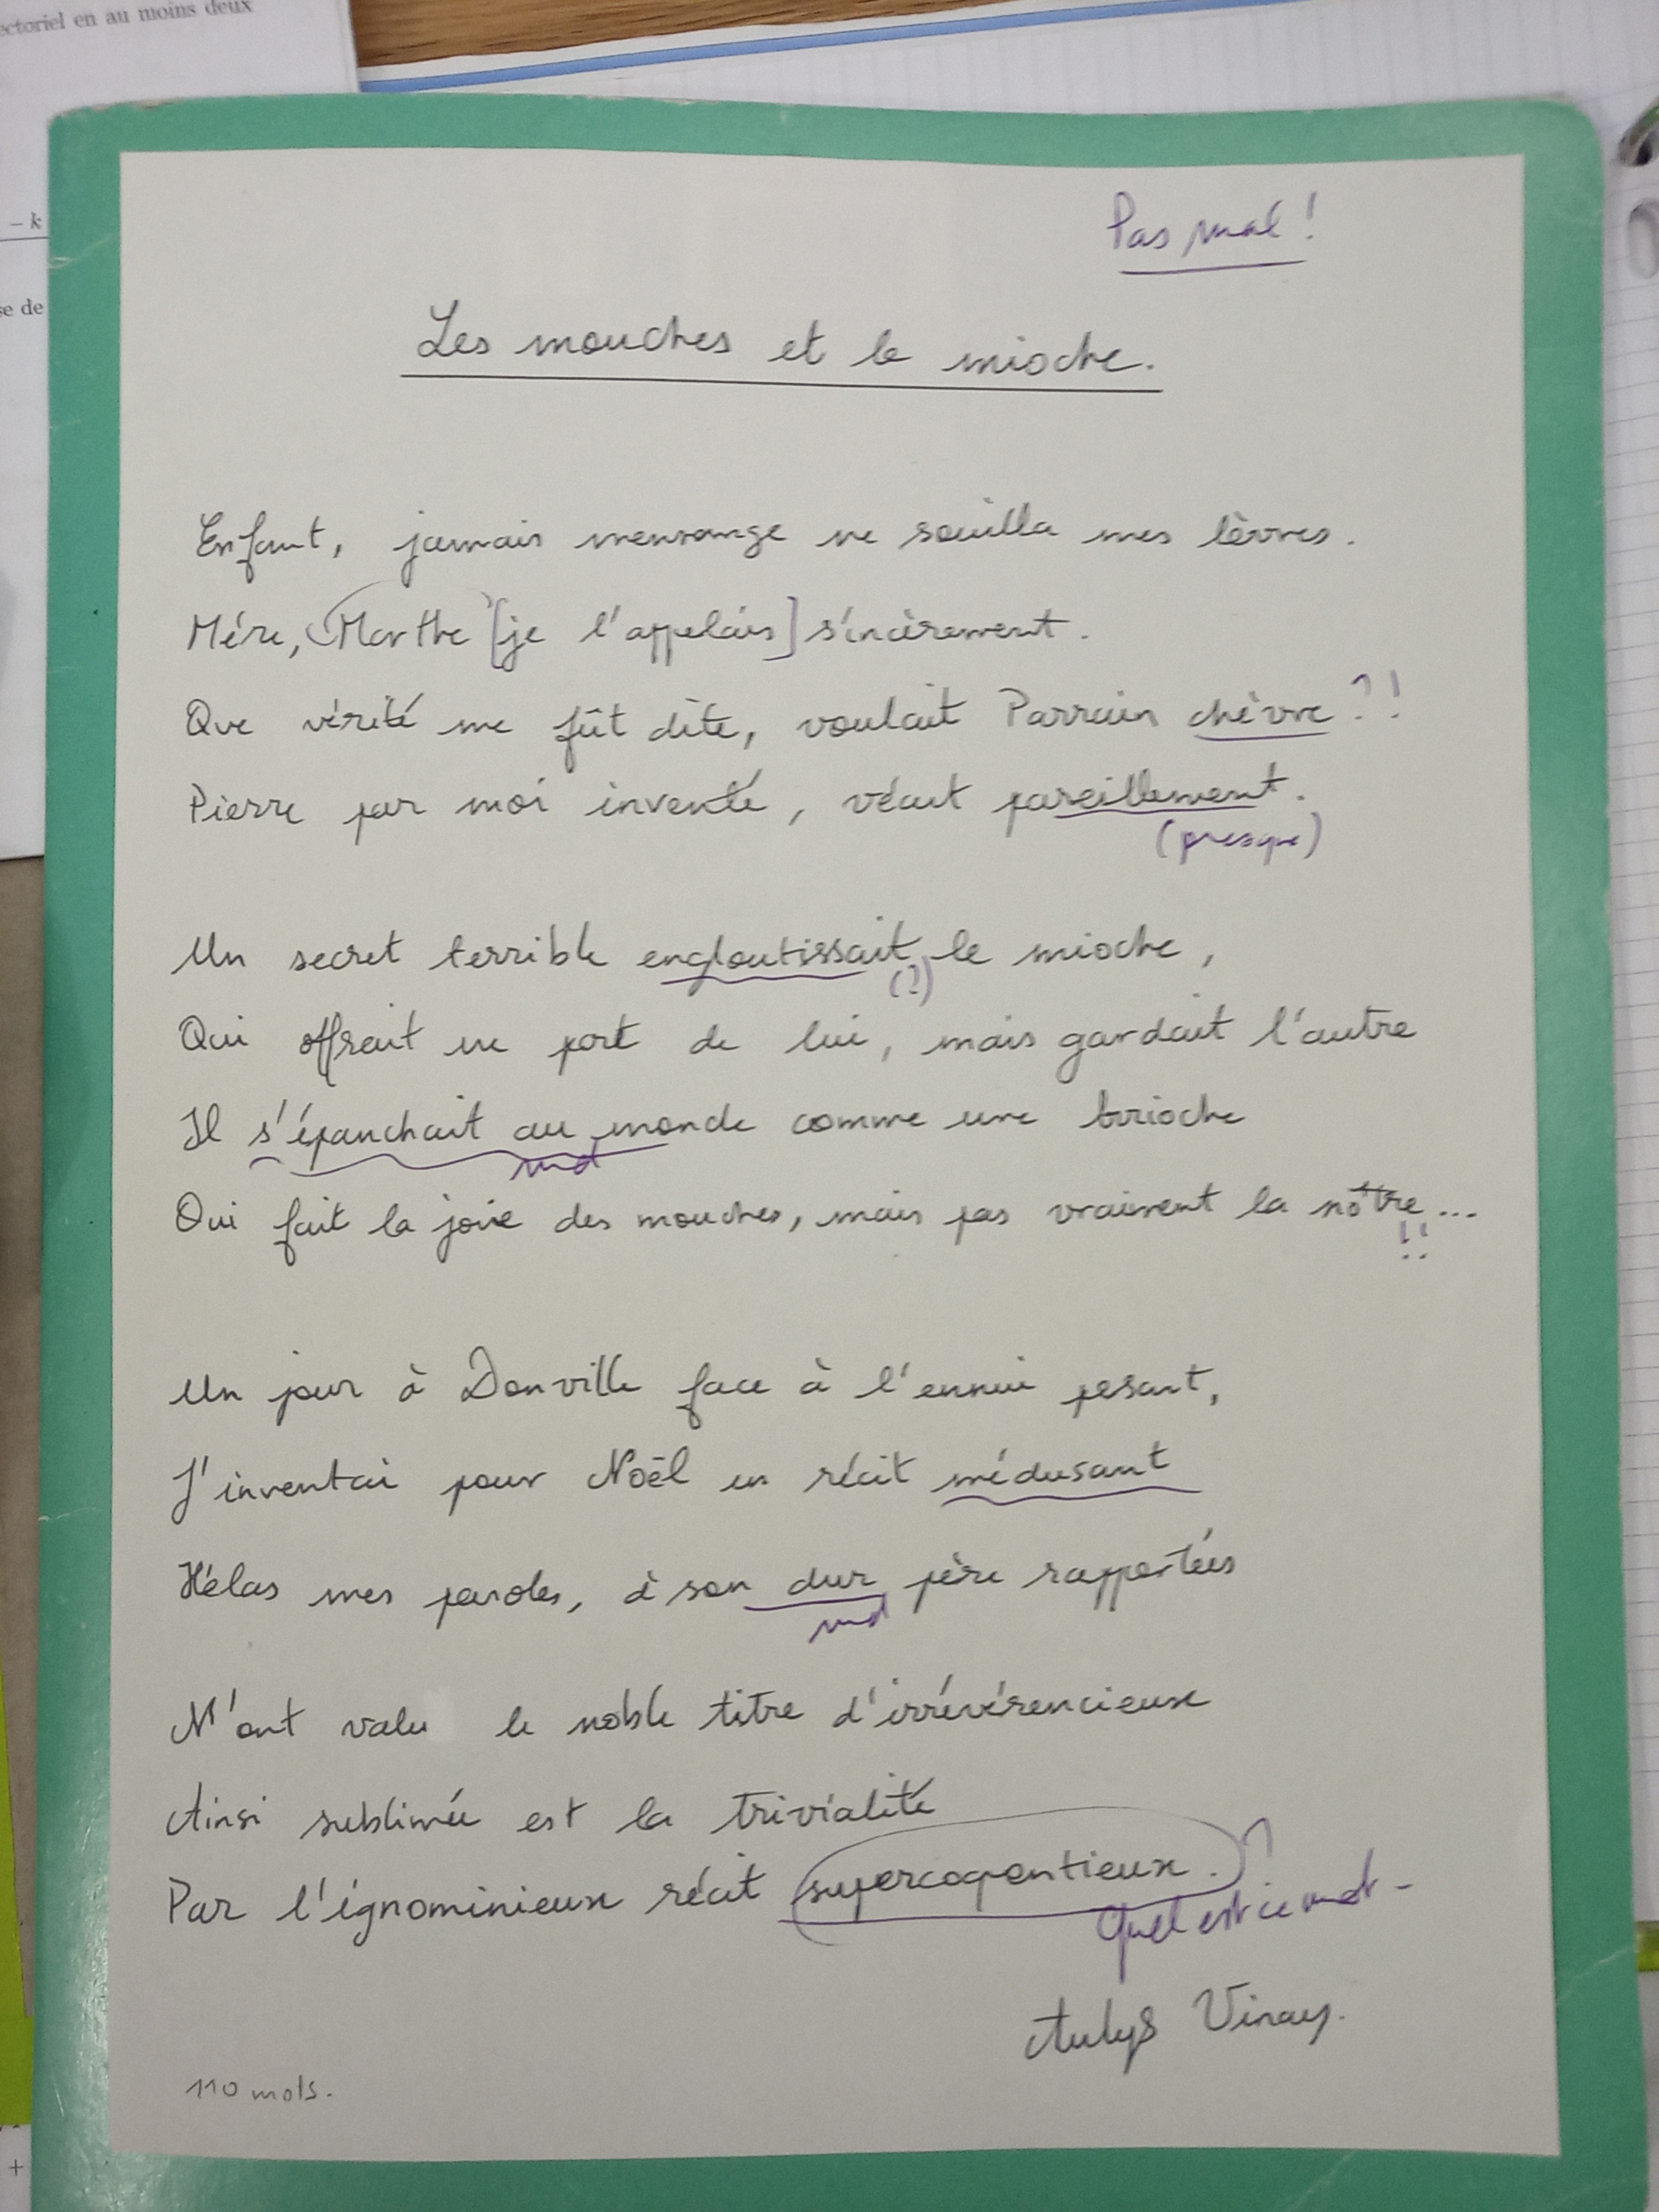 ectoriel en au moins deux
– k
se de
Pas mal !
Les mouches et le mioche.
Enfant, jamais mensonge ne souilla mes lèvres.
Mère, Marthe [je l'appelais] sincèrement.
Que vérité me fût dite, voulait Parrain chèvre ?!
Pierre par moi inventé, vécut pareillement.
(presque)
Un secret terrible engloutissait le mioche,
(?)
Qui offrait un part de lui, mais gardait l'autre
Il s'épanchait au monde comme une brioche
md
Qui fait la joie des mouches, mais pas vraiment la nôtre...
!!
Un jour à Donville face à l'ennui pesant,
J'inventai pour Noël un récit médusant
Hélas mes paroles, à son dur père rapportées
md
M'ont valu le noble titre d'irrévérencieuse
Ainsi sublimée est la trivialité
Par l'ignominieux récit supercoquentieux. ?
Quel est ce mot -
Aulys Vinay.
110 mots.
+